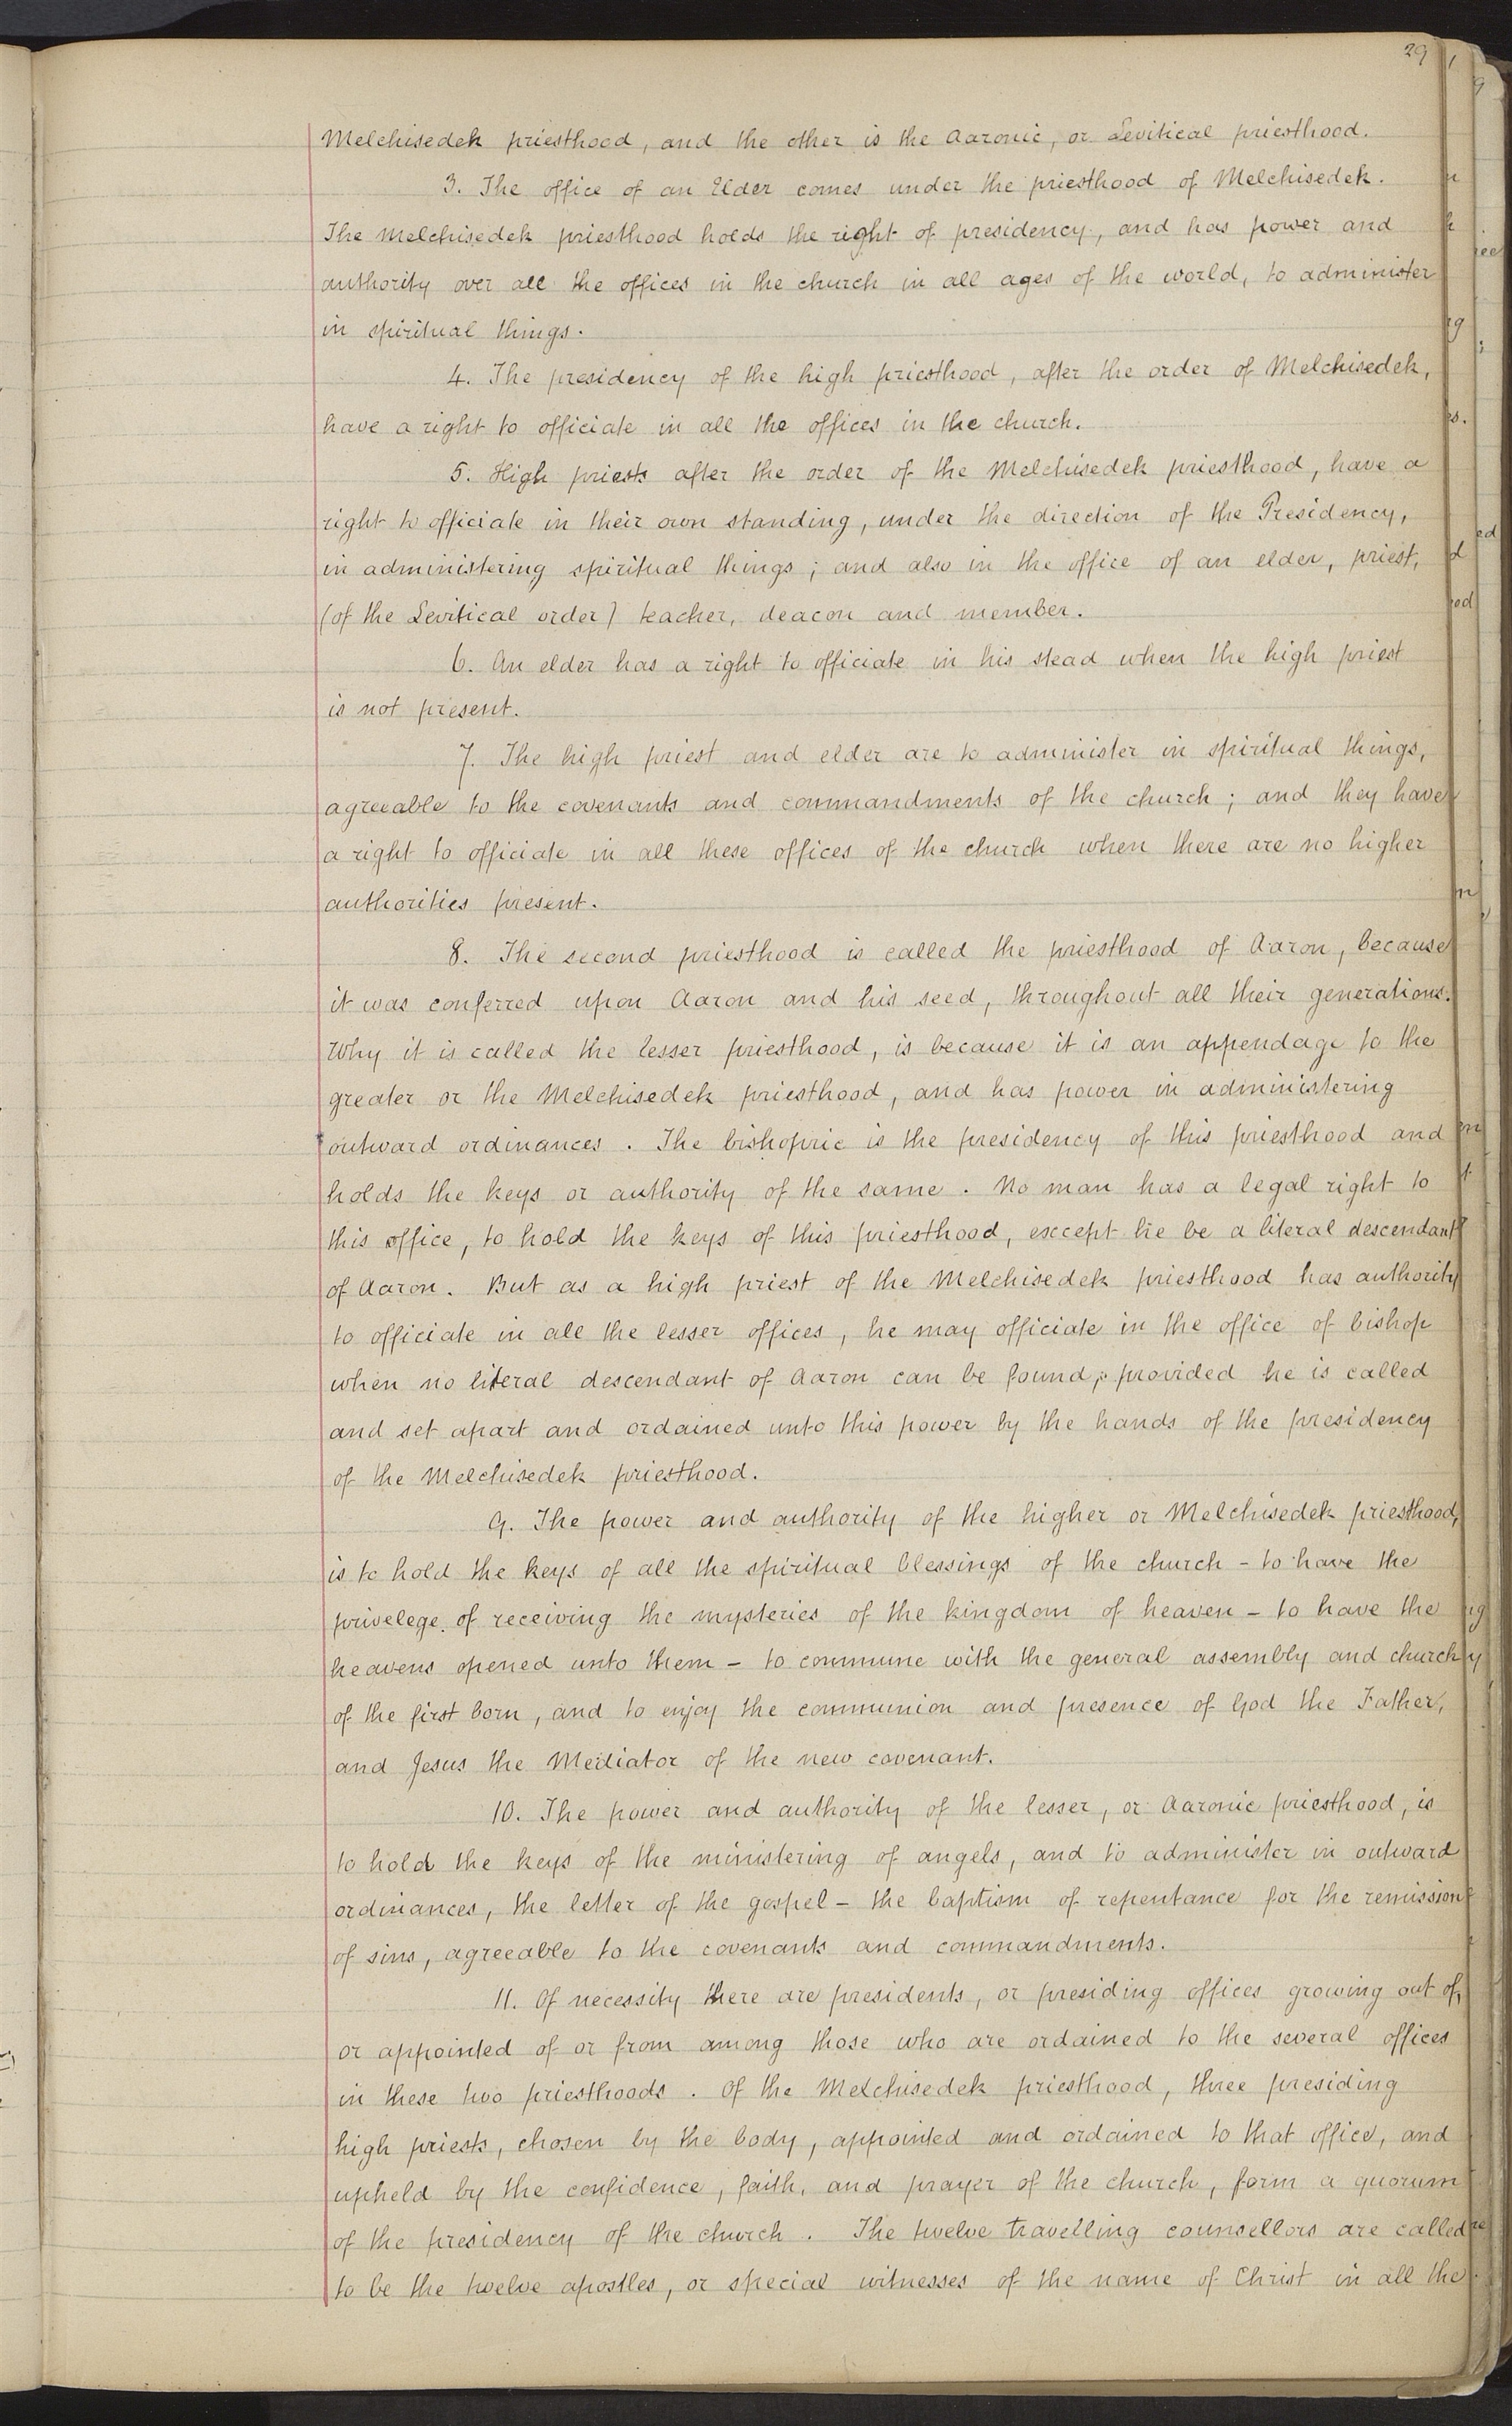 29
Melchisedek priesthood, and the other is the Aaronic, or Levitical priesthood.
3. The office of an Elder comes under the priesthood of Melchisedek.
The Melchisedek priesthood holds the right of presidency, and has power and
authority over all the offices in the church in all ages of the world, to administer
in spiritual things.
4. The presidency of the high priesthood, after the order of Melchisedek,
have a right to officiate in all the offices in the church.
5. High priests after the order of the Melchisedek priesthood, have a
right to officiate in their own standing, under the direction of the Presidency,
in administering spiritual things; and also in the office of an elder, priest,
(of the Levitical order) teacher, deacon and member.
6. An elder has a right to officiate in his stead when the high priest
is not present.
7. The high priest and elder are to administer in spiritual things,
agreeable to the covenants and commandments of the church; and they have
a right to officiate in all these offices of the church when there are no higher
authorities present.
8. The second priesthood is called the priesthood of Aaron, because
it was conferred upon Aaron and his seed, throughout all their generations.
Why it is called the lesser priesthood, is because it is an appendage to the
greater or the Melchisedek priesthood, and has power in administering
outward ordinances. The bishopric is the presidency of this priesthood and
holds the keys or authority of the same. No man has a legal right to
this office, to hold the keys of this priesthood, except he be a literal descendant
of Aaron. But as a high priest of the Melchisedek priesthood has authority
to officiate in all the lesser offices, he may officiate in the office of bishop
when no literal descendant of Aaron can be found; provided he is called
and set apart and ordained unto this power by the hands of the presidency
of the Melchisedek priesthood.
9. The power and authority of the higher or Melchisedek priesthood,
is to hold the keys of all the spiritual blessings of the church - to have the
privelege of receiving the mysteries of the kingdom of heaven - to have the
heavens opened unto them - to commune with the general assembly and church
of the first born, and to enjoy the communion and presence of God the Father,
and Jesus the Mediator of the new covenant.
10. The power and authority of the lesser, or Aaronic priesthood, is
to hold the keys of the ministering of angels, and to administer in outward
ordinances, the letter of the gospel - the baptism of repentance for the remission
of sins, agreeable to the covenants and commandments.
11. Of necessity there are presidents, or presiding offices growing out of,
or appointed of or from among those who are ordained to the several offices
in these two priesthoods. Of the Melchisedek priesthood, three presiding
high priests, chosen by the body, appointed and ordained to that office, and
upheld by the confidence, faith, and prayer of the church, form a quorum
of the presidency of the church. The twelve travelling counsellors are called
to be the twelve apostles, or special witnesses of the name of Christ in all the